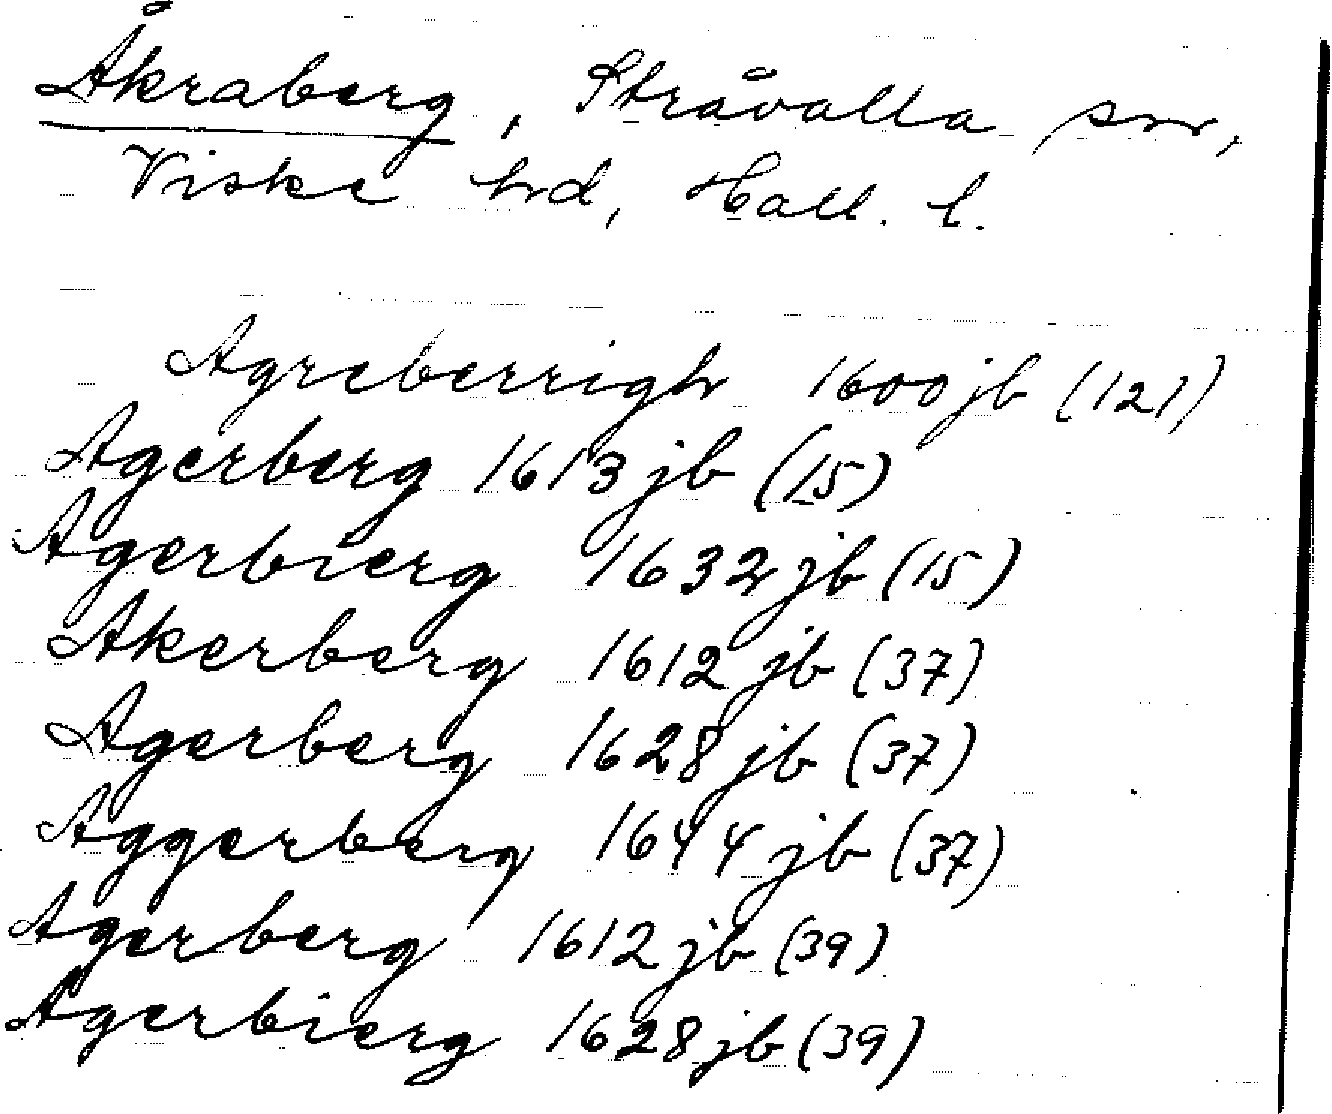 Åkraberg, Stråvalla sn,
Viske hd, Hall. l.
Agreberrigh 1600 jb (121)
Agerberg 1613 jb (15)
Agerbierg 1632 jb (15)
Akerberg 1612 jb (37)
Agerberg 1628 jb (37)
Aggerberg 1644 jb (37)
Agerberg 1612 jb (39)
Agerbierg 1628 jb (39)